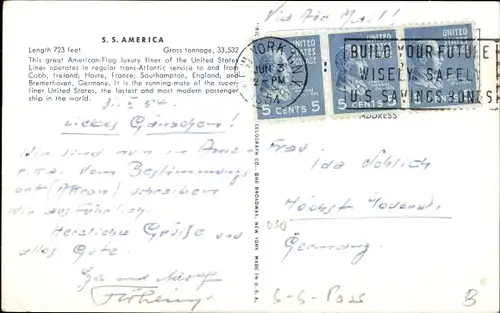 S. S. AMERICA
Length 723 feet Gross tonnage, 33,532
This great American-Flag luxury liner of the United States
Lines operates in regular trans-Atlantic service to and from
Cobh, Ireland; Havre, France; Southampton, England; and
Bremerhaven, Germany. It is the running-mate of the super-
liner United States, the fastest and most modern passenger
ship in the world.
54.
Liebes Gänschen!
Wir sind nun in Ame-
rika. Vom Bestimmungs
ort (Akron) schreiben
wir ausführlich.
Herzliche Grüße und
alles Gute.
und Adolf
Via Air Mail!
NEW YORK, N.Y.
JUN
PM
BUILD YOUR FUTURE
WISELY SAFELY
U.S. SAVINGS BONDS
UNITED STATES
5 CENTS 5
5 CENTS 5
5 CENTS 5
ADDRESS
Frau
Ida
Höchst Odenwald
Germany
ONE BROADWAY, NEW YORK. MADE IN U.S.A.
B